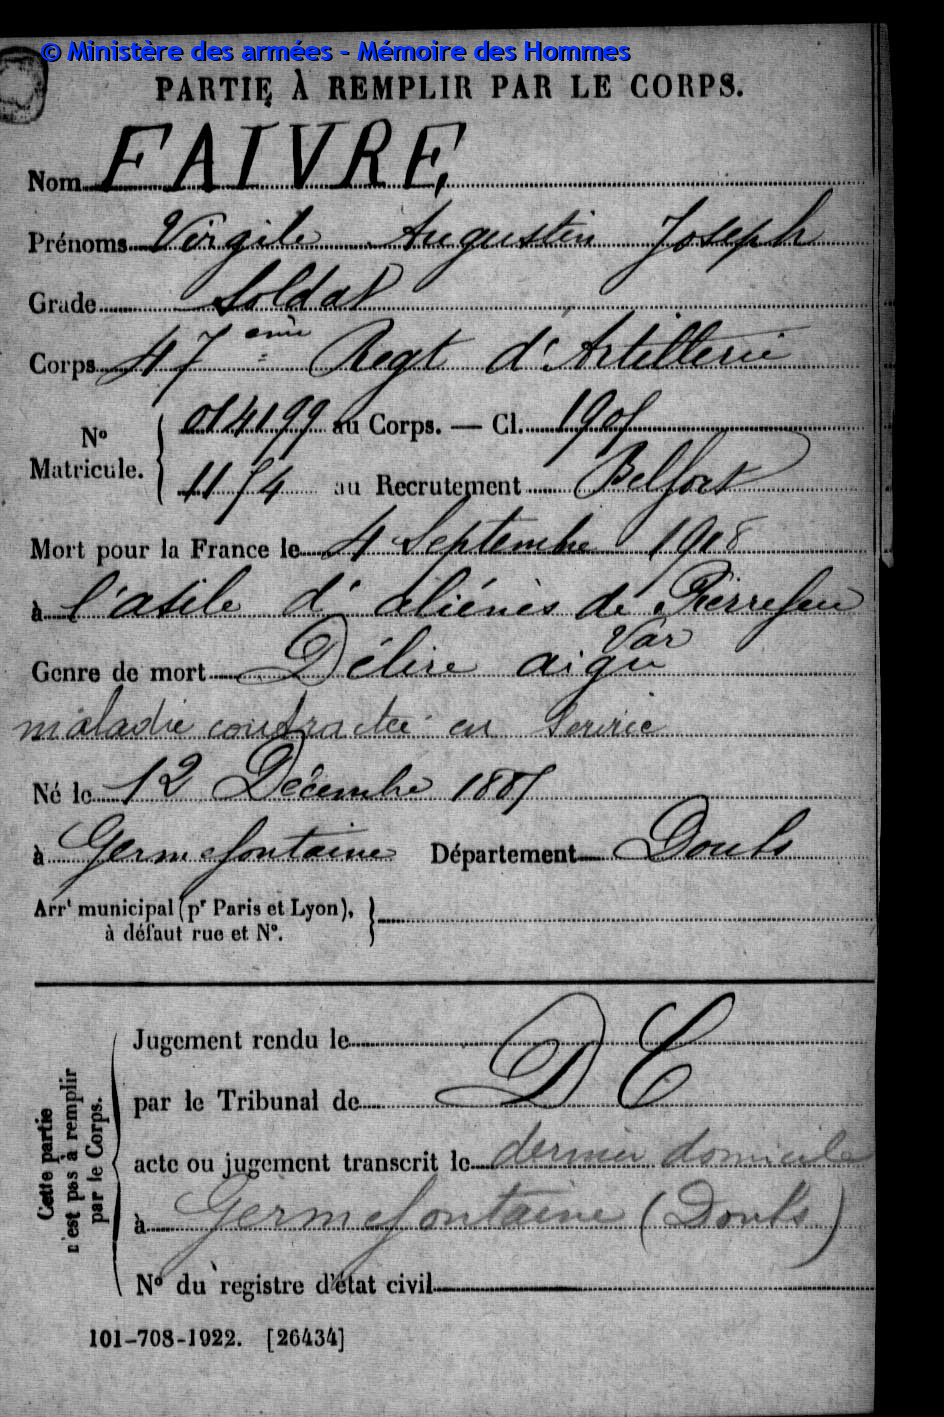 © Ministère des armées - Mémoire des Hommes
PARTIE À REMPLIR PAR LE CORPS.
Nom FAIVRE
Prénoms Virgile Augustin Joseph
Grade Soldat
Corps 47ème Regt d'Artillerie
N° Matricule. 014199 au Corps. — Cl. 1905
1154 au Recrutement Belfort
Mort pour la France le 4 Septembre 1918
à l'asile d'aliénés de Pierrefeu
Var
Genre de mort Délire aigu
maladie contractée en Service
Né le 12 Décembre 1885
à Germéfontaine Département Doubs
Arrt municipal (pr Paris et Lyon),
à défaut rue et N°.
Cette partie
n'est pas à remplir
par le Corps.
Jugement rendu le D C
par le Tribunal de
acte ou jugement transcrit le dernier domicile
à Germéfontaine (Doubs)
N° du registre d'état civil
101-708-1922. [26434]